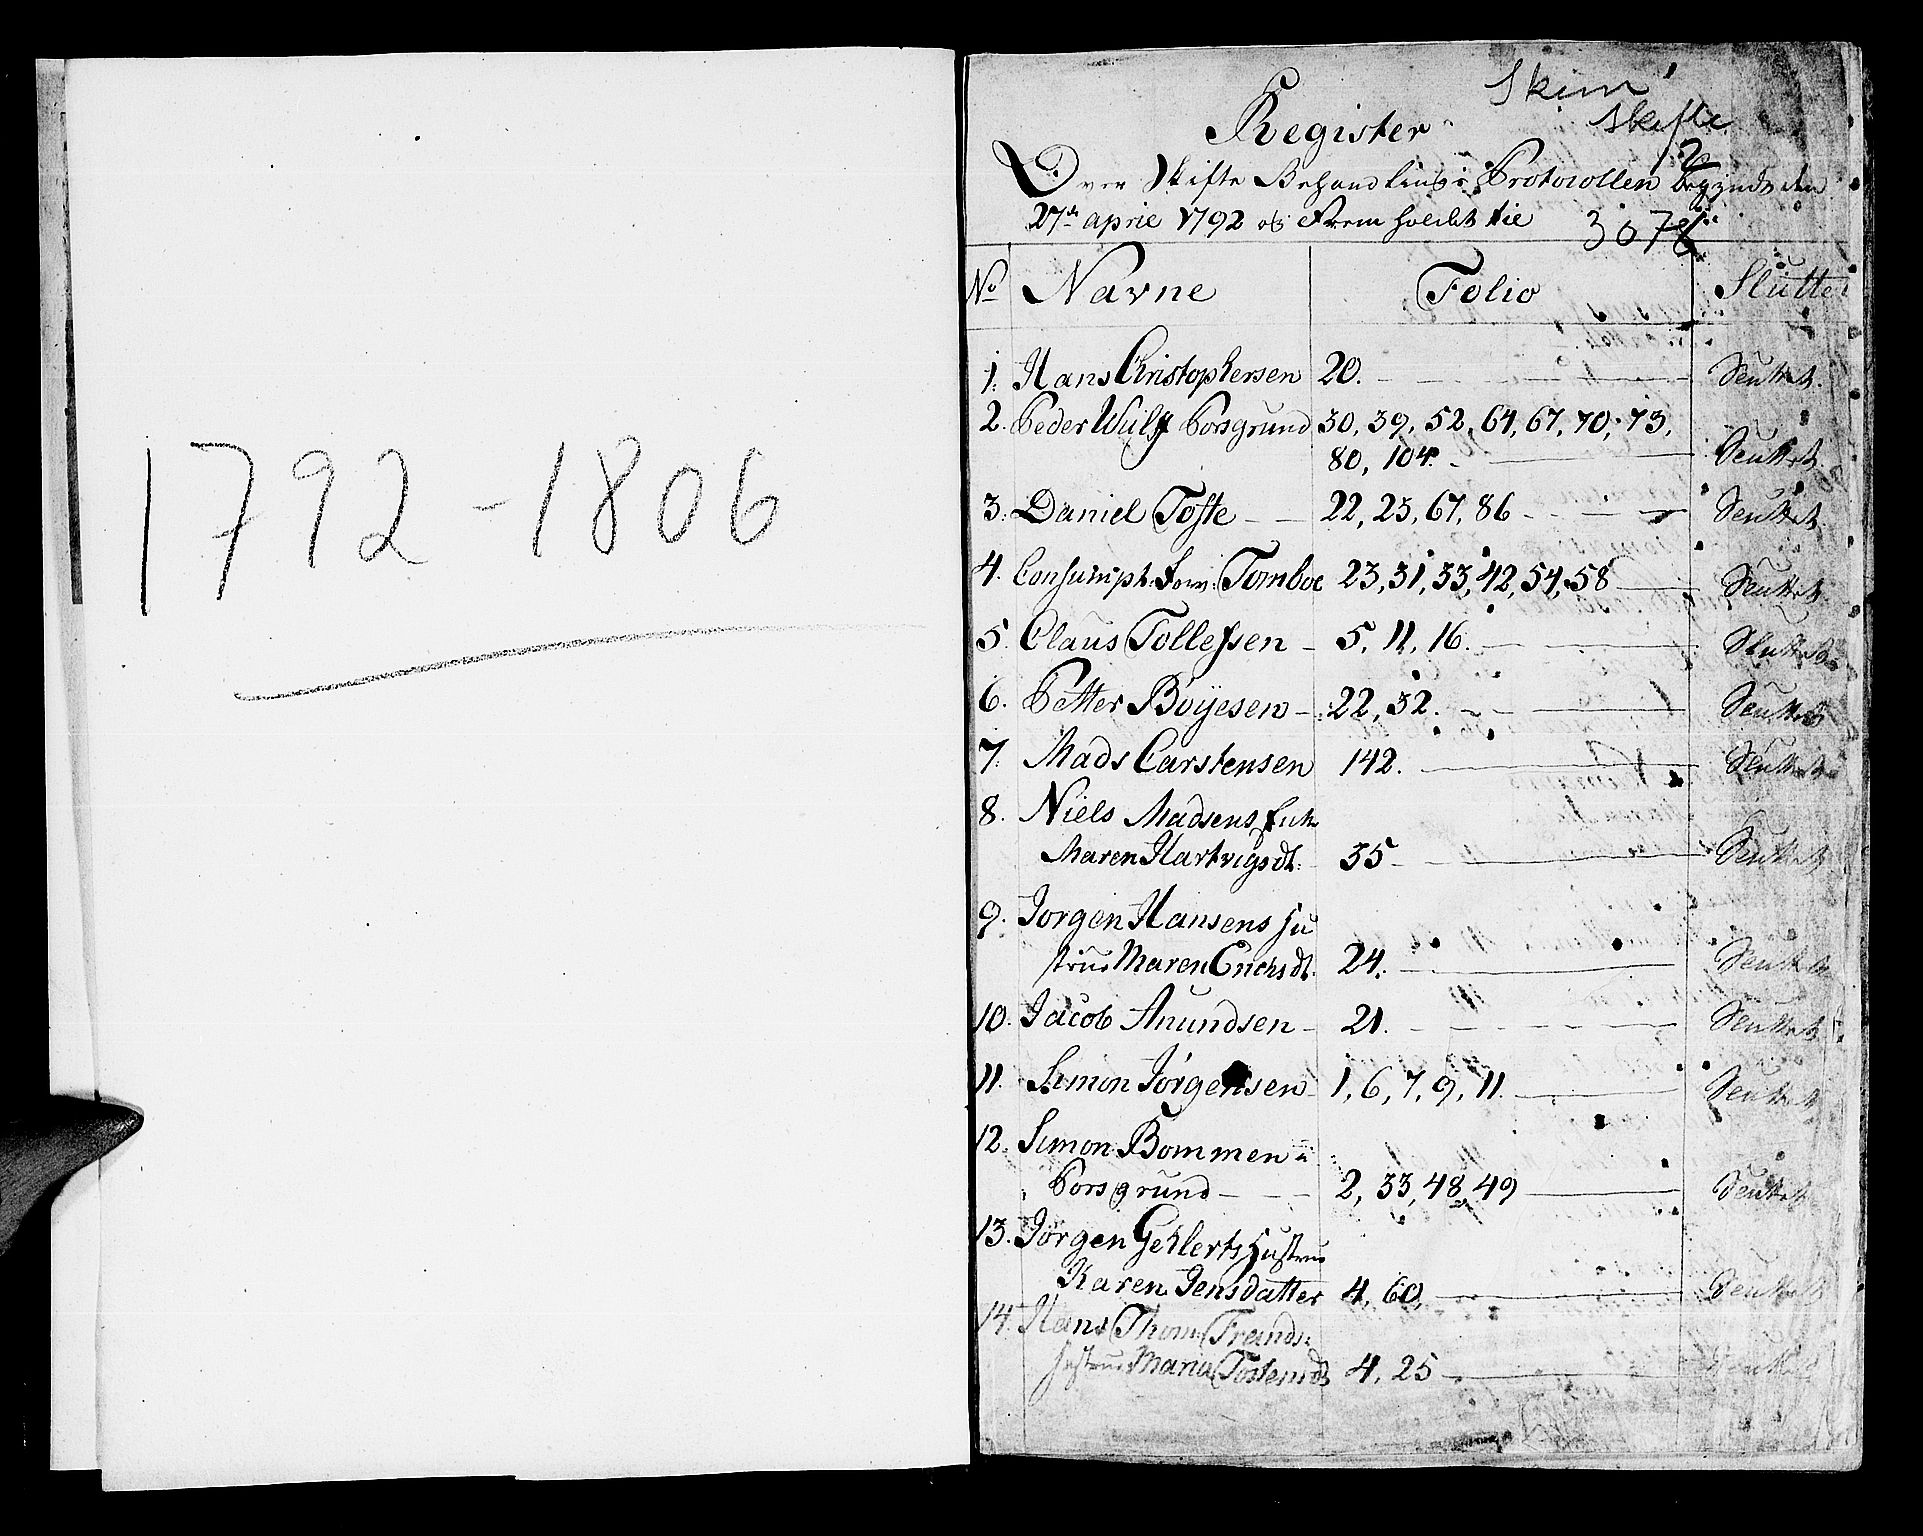 1792 - 1806
Skien
Skifte
2
Register
Over Skifte Behandlings Protocollen begyndt den
27de april 1792 og Frem holdt til
3078
No Navne Folio Sluttet
1. Hans Christophersen 20. Sluttet
2. Peder Wülf Porsgrund 30, 39, 52, 64, 67, 70, 73,
80, 104. Sluttet
3. Daniel Tofte 22, 25, 67, 86 Sluttet
4. Consumpt. Forv. Tomboe 23, 31, 33, 42, 54, 58 Sluttet
5. Claus Tollefsen 5, 11, 16. Sluttet
6. Petter Böyesen 22, 32. Sluttet
7. Mads Carstensen 142. Sluttet
8. Niels Madsens Enke
Maren Hartvigsdt. 35 Sluttet
9. Jörgen Hansens Hu
strue Maren Erichsdt. 24. Sluttet
10. Jacob Anundsen 21. Sluttet
11. Simon Jörgensen 1, 6, 7, 9, 11. Sluttet
12. Simon Bommen
Porsgrund 2, 33, 48, 49 Sluttet
13. Jörgen Gehlerts Hustrue
Karen Jensdatter 4, 60, Sluttet
14. Hans Thom Frands:
Hustrue Maria Tostensdt 4, 25 Sluttet